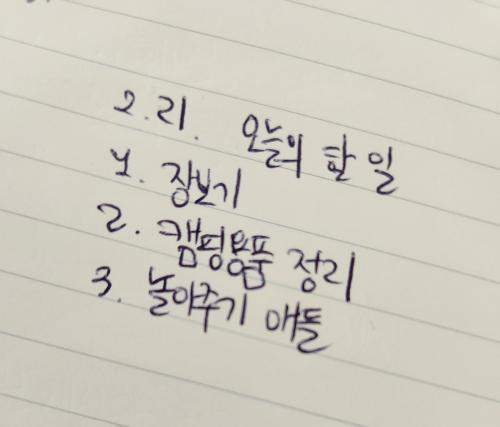 2.21. 오늘의 할 일
1. 장보기
2. 캠핑용품 정리
3. 놀아주기 애들